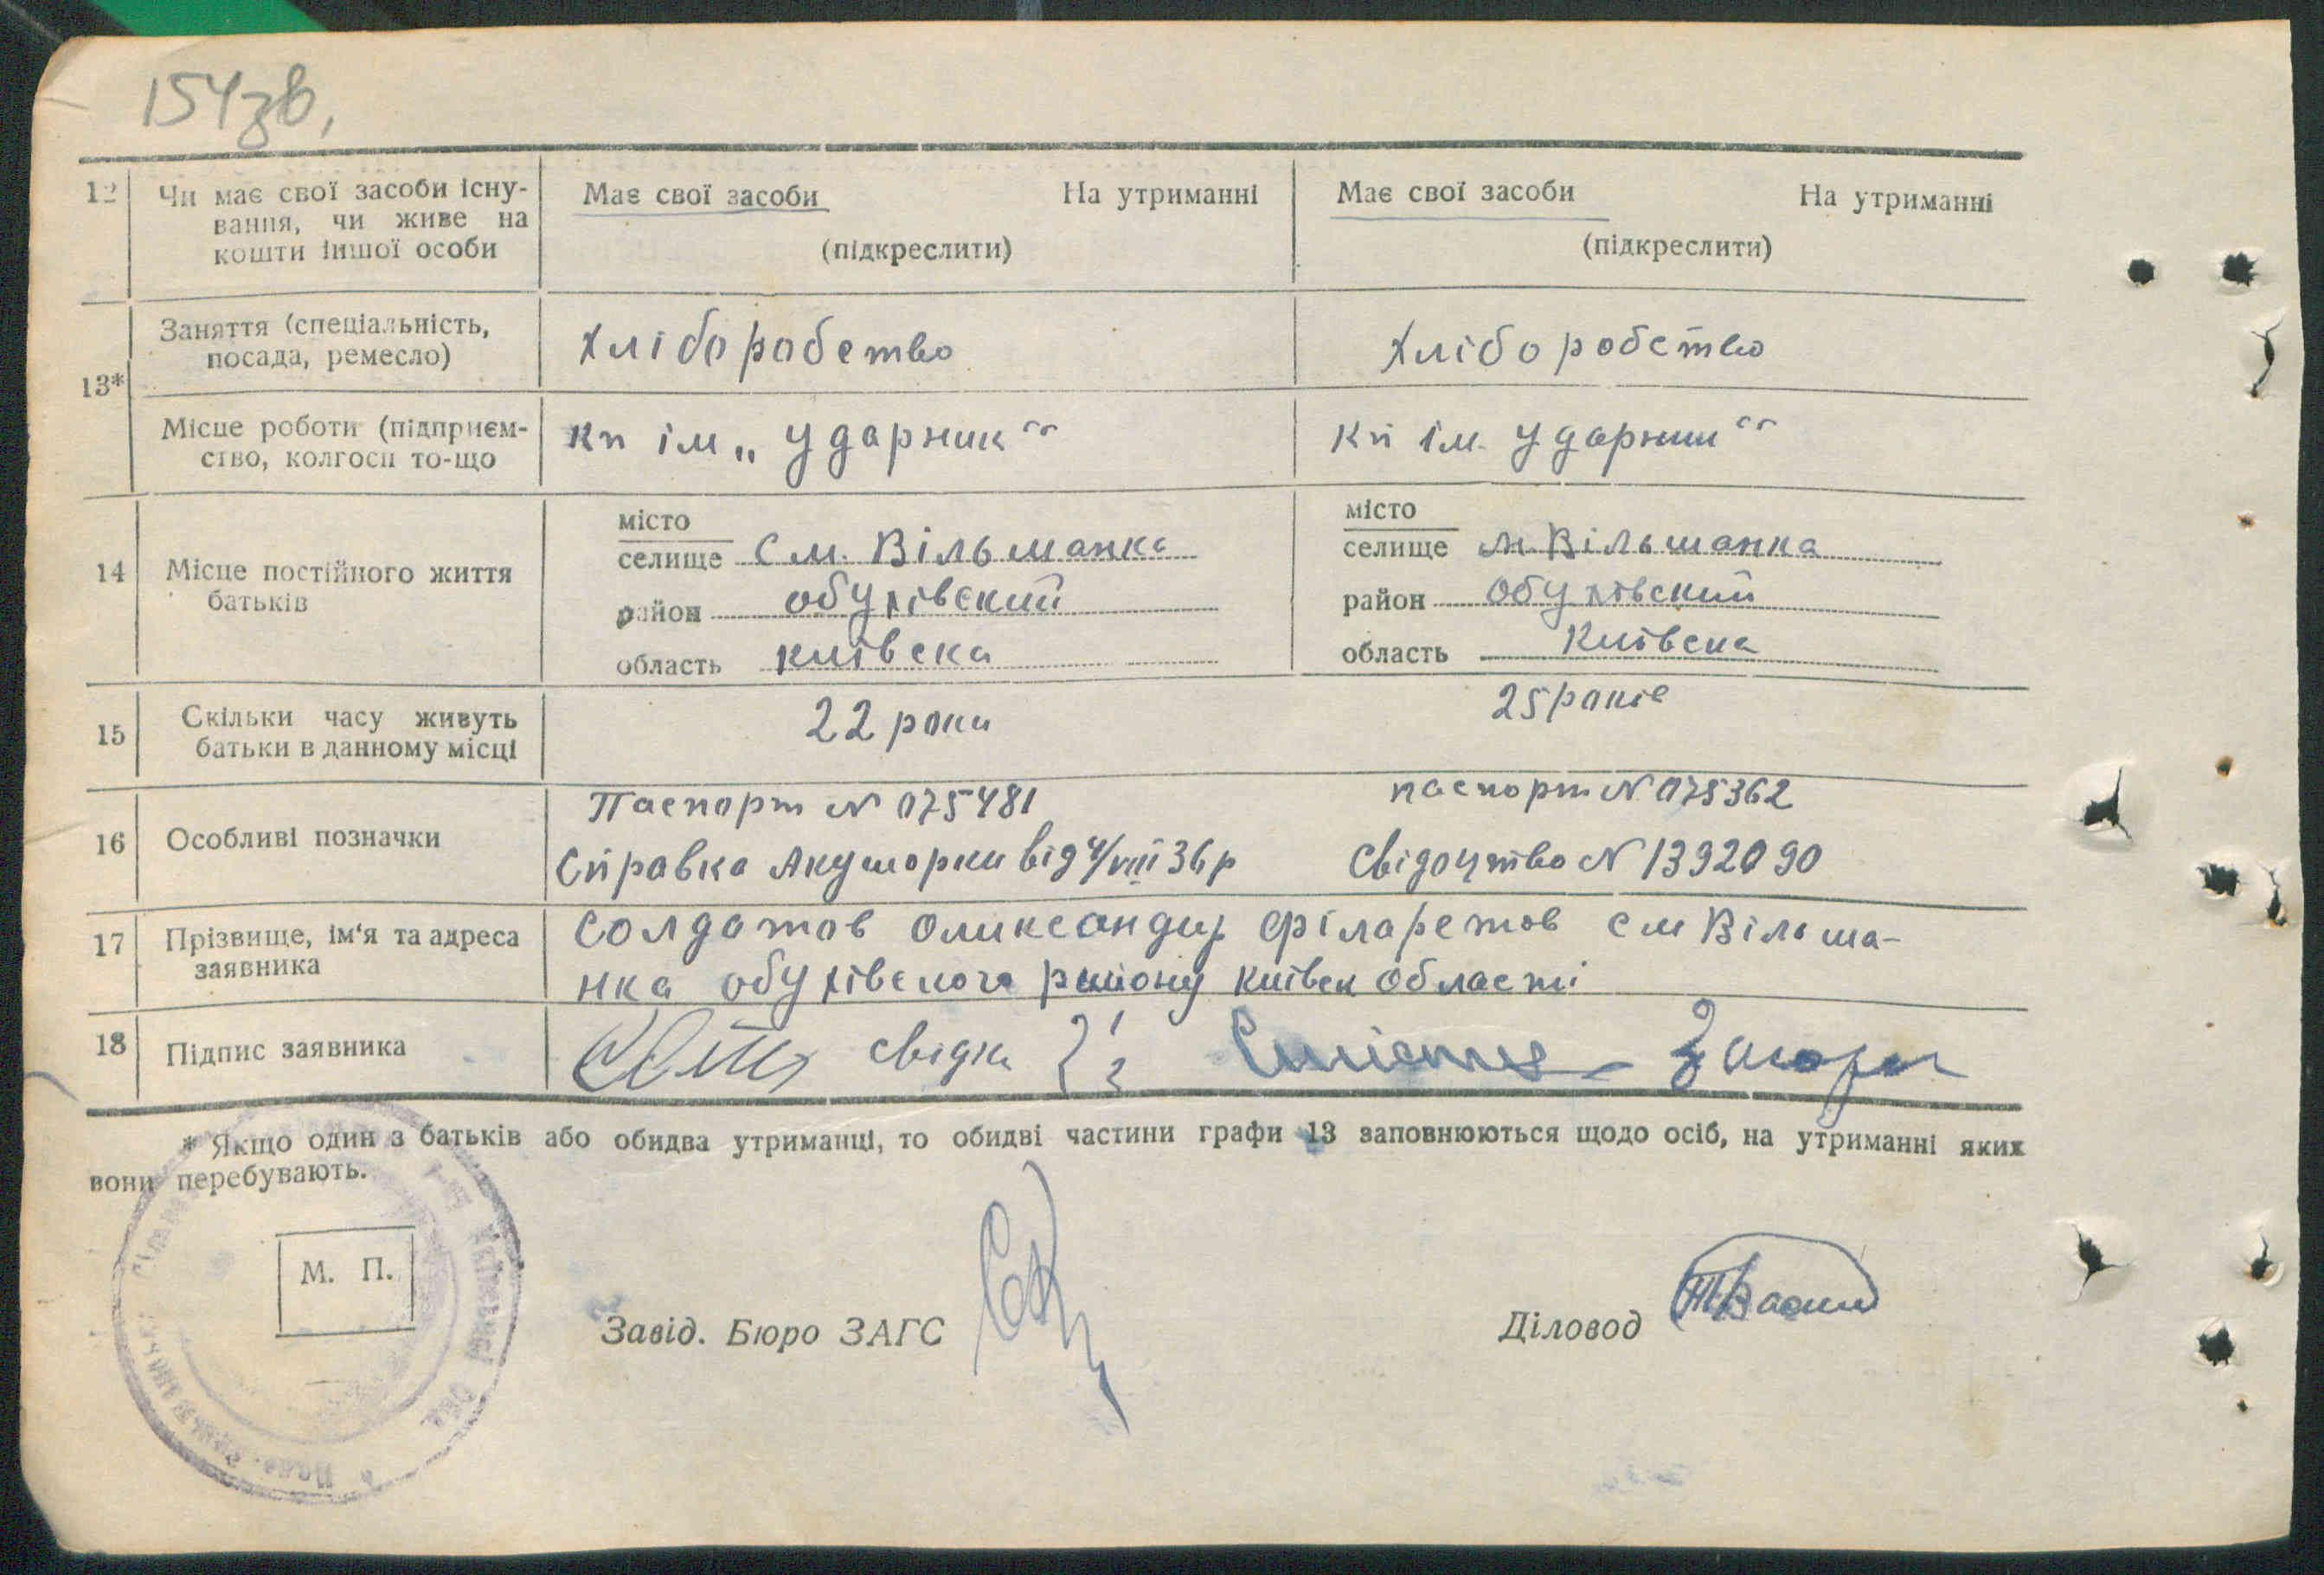 154зв.
12 Чи має свої засоби існу- Має свої засоби На утриманні Має свої засоби На утриманні
вання, чи живе на (підкреслити) (підкреслити)
кошти іншої особи
13* Заняття (спеціальність, Хліборобство Хліборобство
посада, ремесло)
Місце роботи (підприєм- кп ім „Ударник“ кп ім. Ударник“
ство, колгосп то-що
14 Місце постійного життя батьків
місто місто
селище См. Вільшанка селище м. Вільшанка
район обухівский район обухівский
область київска область Київска
15 Скільки часу живуть 22 роки 25 років
батьки в данному місці
16 Особливі позначки Паспорт N 075481 паспорт N 075362
Справка Акушорки від 4/VIII 36 р Свідоцтво N 1392090
17 Прізвище, ім‘я та адреса Солдатов Олександр Філаретов см Вільша-
заявника нка обухівского району київск області
18 Підпис заявника свідки 1 2
* Якщо один з батьків або обидва утриманці, то обидві частини графи 13 заповнюються щодо осіб, на утриманні яких
вони перебувають.
М. П.
Завід. Бюро ЗАГС Діловод